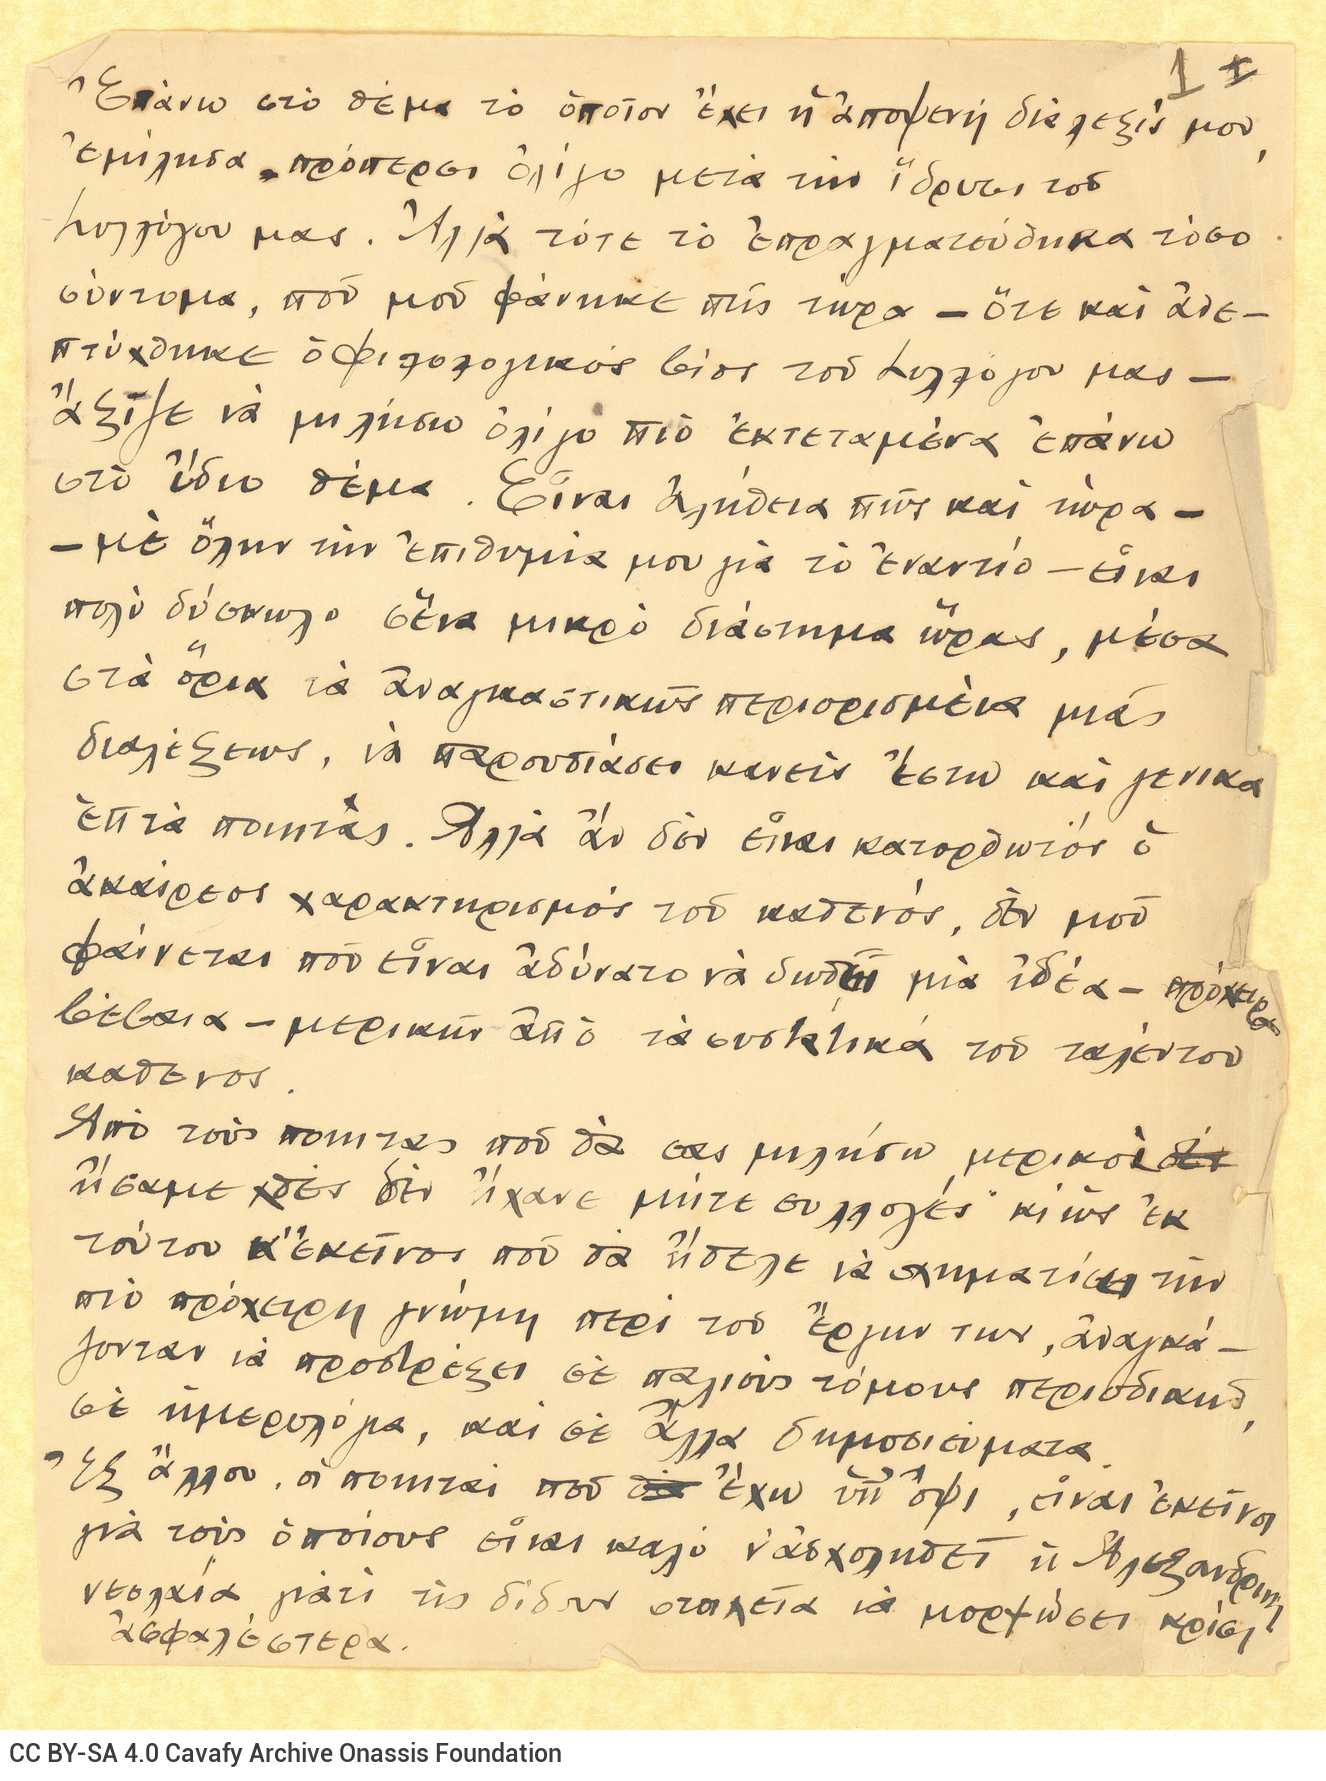 1
Ἐπάνω στὸ θέμα τὸ ὁποῖον ἔχει ἡ ἀποψενὴ διάλεξίς μου,
ἐμίλησα πρόπερσι ὀλίγο μετὰ τὴν ἵδρυσι τοῦ
Συλλόγου μας. Ἀλλὰ τότε τὸ ἐπραγματεύθηκα τόσο
σύντομα, ποῦ μοῦ φάνηκε πῶς τώρα — ὅτε καὶ ἀνε-
πτύχθηκε ὁ φιλολογικὸς βίος τοῦ Συλλόγου μας —
ἄξιζε νὰ μιλήσω ὀλίγο πιὸ ἐκτεταμένα ἐπάνω
στὸ ἴδιο θέμα. Εἶναι ἀλήθεια πῶς καὶ τώρα —
— μὲ ὅλην τὴν ἐπιθυμία μου γιὰ τὸ ἐναντίο — εἶναι
πολὺ δύσκολο σ' ἕνα μικρὸ διάστημα ὥρας, μέσα
στὰ ὅρια τὰ ἀναγκαστικῶς περιορισμένα μιᾶς
διαλέξεως, νὰ παρουσιάσει κανεὶς ἔστω καὶ γενικὰ
ἑπτὰ ποιητάς. Ἀλλὰ ἂν δὲν εἶναι κατορθωτὸς ὁ
ἀκαίρεος χαρακτηρισμὸς τοῦ καθενός, δὲν μοῦ
φαίνεται ποῦ εἶναι ἀδύνατο νὰ δωθεῖ μιὰ ἰδέα — πρόχειρα
βέβαια — μερικῶν ἀπὸ τὰ συστατικὰ τοῦ ταλέντου
καθενος.
Ἀπὸ τοὺς ποιητὰς ποῦ θὰ σας μιλήσω μερικοὶ δὲν
ἤσαμε χθὲς δὲν ἤχανε μήτε συλλογές· κι ὡς ἐκ
τούτου κ' ἐκεῖνος ποῦ θὰ ἤθελε νὰ σχηματίσει τὴν
πιὸ πρόχειρη γνώμη περὶ τοῦ ἔργου των, ἀναγκά-
ζονταν νὰ προστρέξει σὲ παλιοὺς τόμους περιοδικῶν,
σὲ ἡμερολόγια, καὶ σὲ ἄλλα δημοσιεύματα.
Ἐξ ἄλλου, οἱ ποιηταὶ ποῦ θὰ ἔχω ὑπ' ὄψι, εἶναι ἐκεῖνοι
γιὰ τοὺς ὁποίους εἶναι καλὸ ν' ἀσχοληθεῖ ἡ Ἀλεξανδρινὴ
νεολαία γιατὶ τῆς δίδουν στοιχεῖα νὰ μορφώσει κρίσι
ἀσφαλέστερα.
CC BY-SA 4.0 Cavafy Archive Onassis Foundation